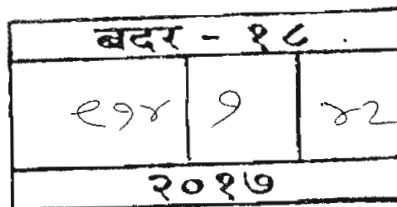 बदर - १८
९७४ १ ४२
२०१७